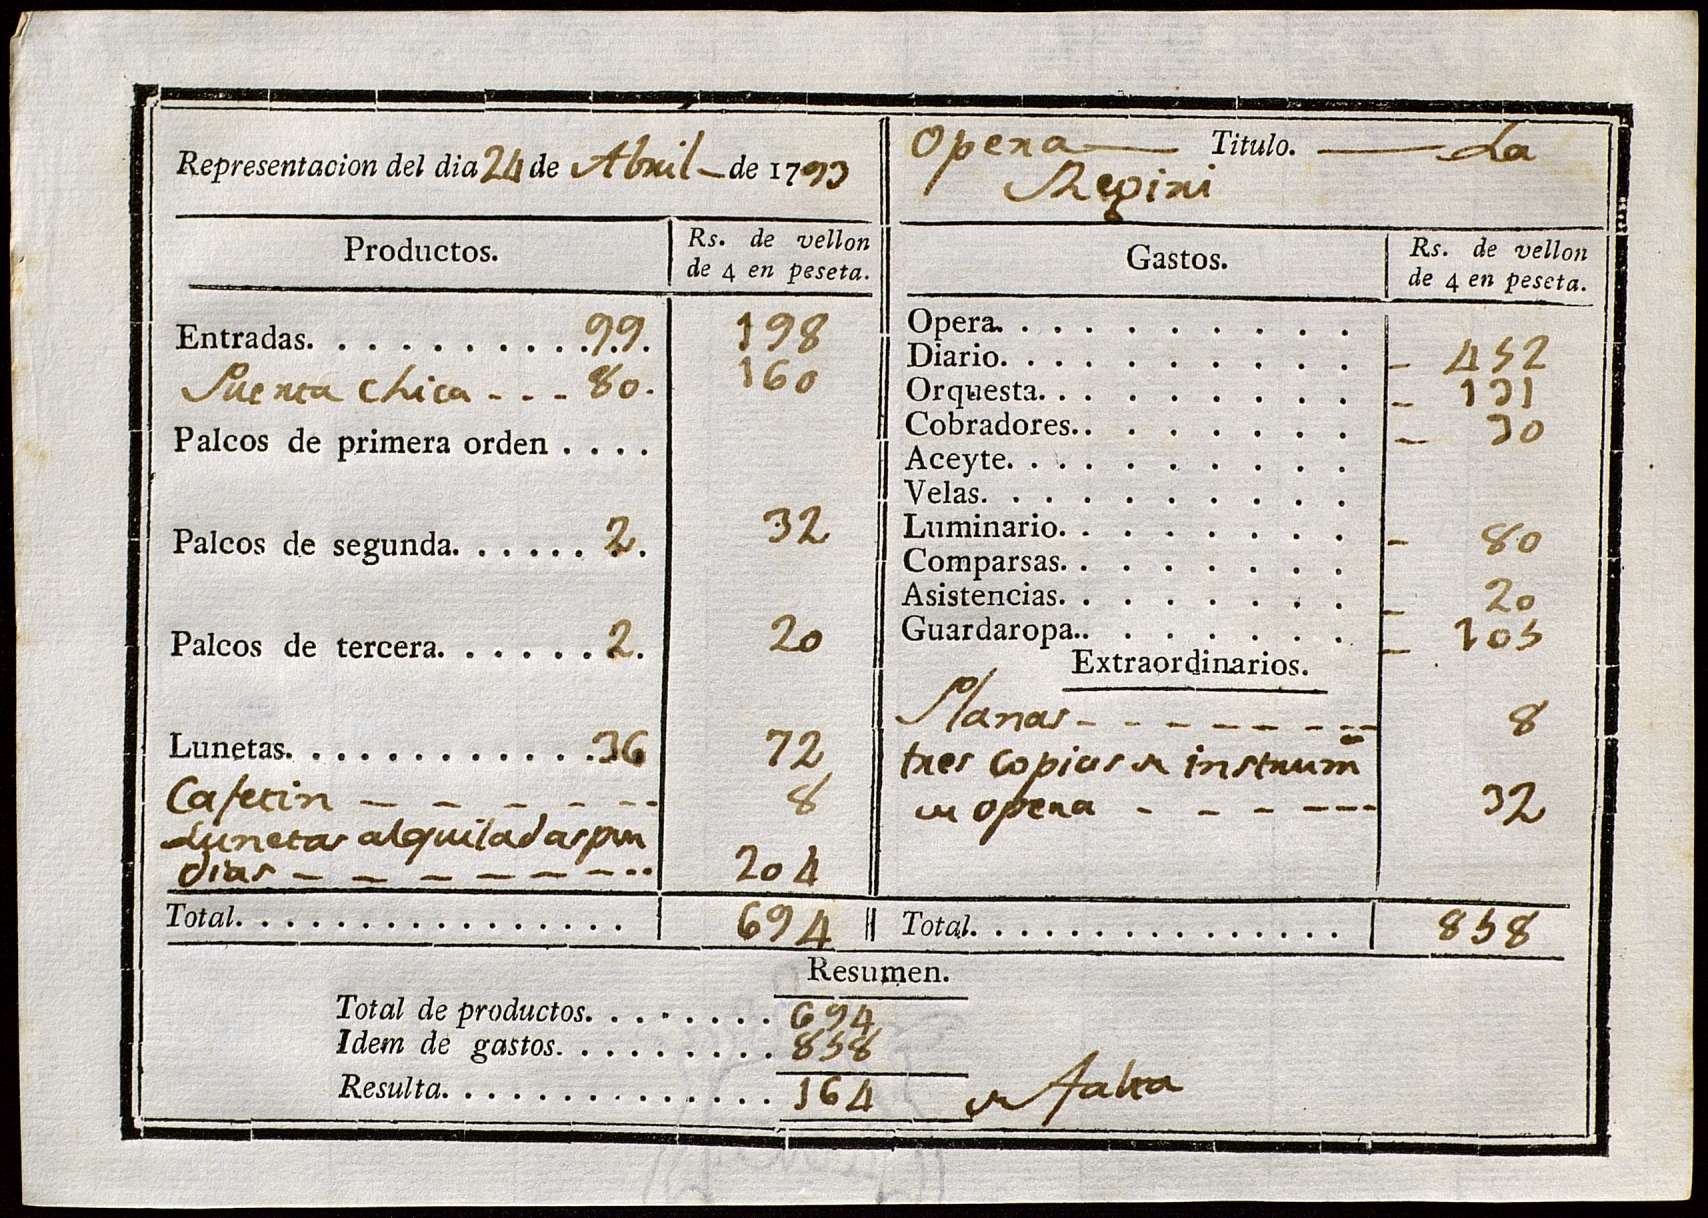 Representacion del dia 24 de Abril de 1793
Opera Titulo. La
Regini
Productos.
Rs. de vellon
de 4 en peseta.
Entradas. 99. 198
Puerta chica 80. 160
Palcos de primera orden
Palcos de segunda. 2. 32
Palcos de tercera. 2. 20
Lunetas. 36 72
Cafetin 8
Lunetas alquiladas por
dias 204
Total. 694
Gastos.
Rs. de vellon
de 4 en peseta.
Opera.
Diario. 452
Orquesta. 131
Cobradores. 30
Aceyte.
Velas.
Luminario. 80
Comparsas.
Asistencias. 20
Guardaropa. 105
Extraordinarios.
Planas 8
tres copias de instrum
de opera 32
Total. 858
Resumen.
Total de productos. 694
Idem de gastos. 858
Resulta. 164 de falta